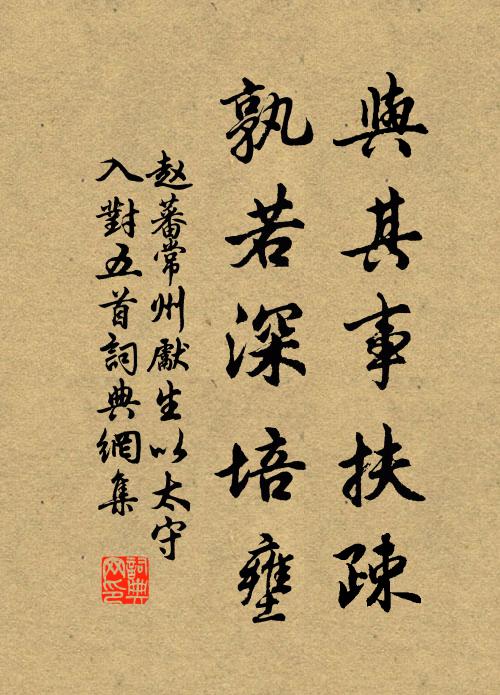 與其事扶疎
孰若深培壅
赵蕃常州獻生以太守
入對五首詞典網集
詞典
网印